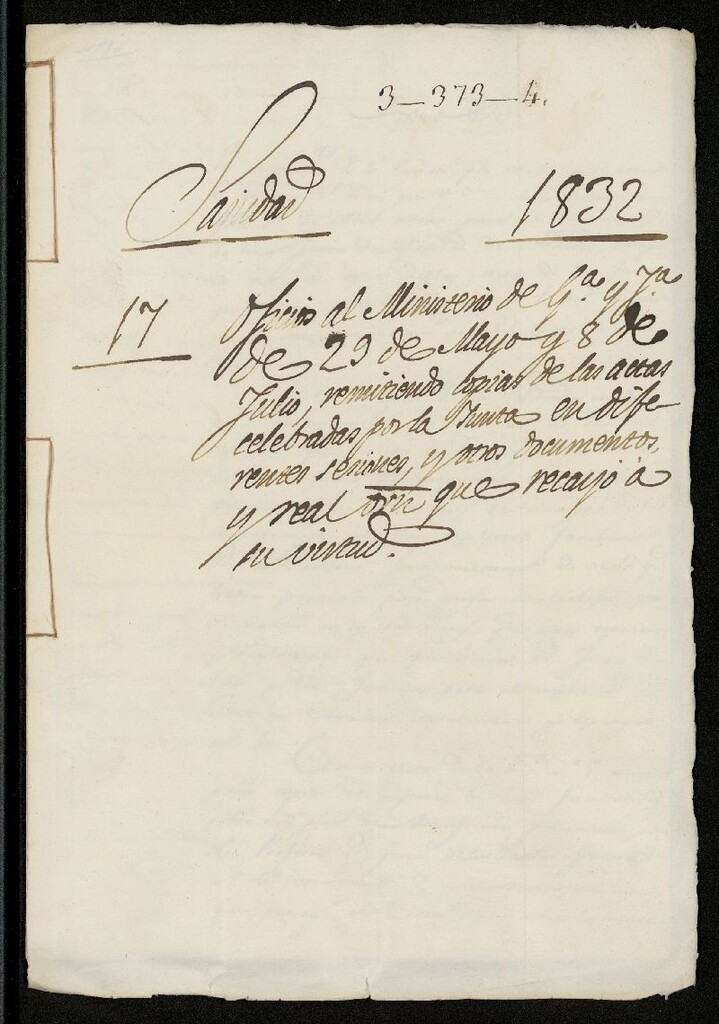 3-373-4.
Sanidad
1832
17
Oficios al Ministerio de G.a y J.a
de 29 de Mayo y 8 de
Julio, remitiendo copias de las actas
celebradas por la Junta en dife-
rentes sesiones, y otros documentos,
y real orn que recayó à
su virtud.